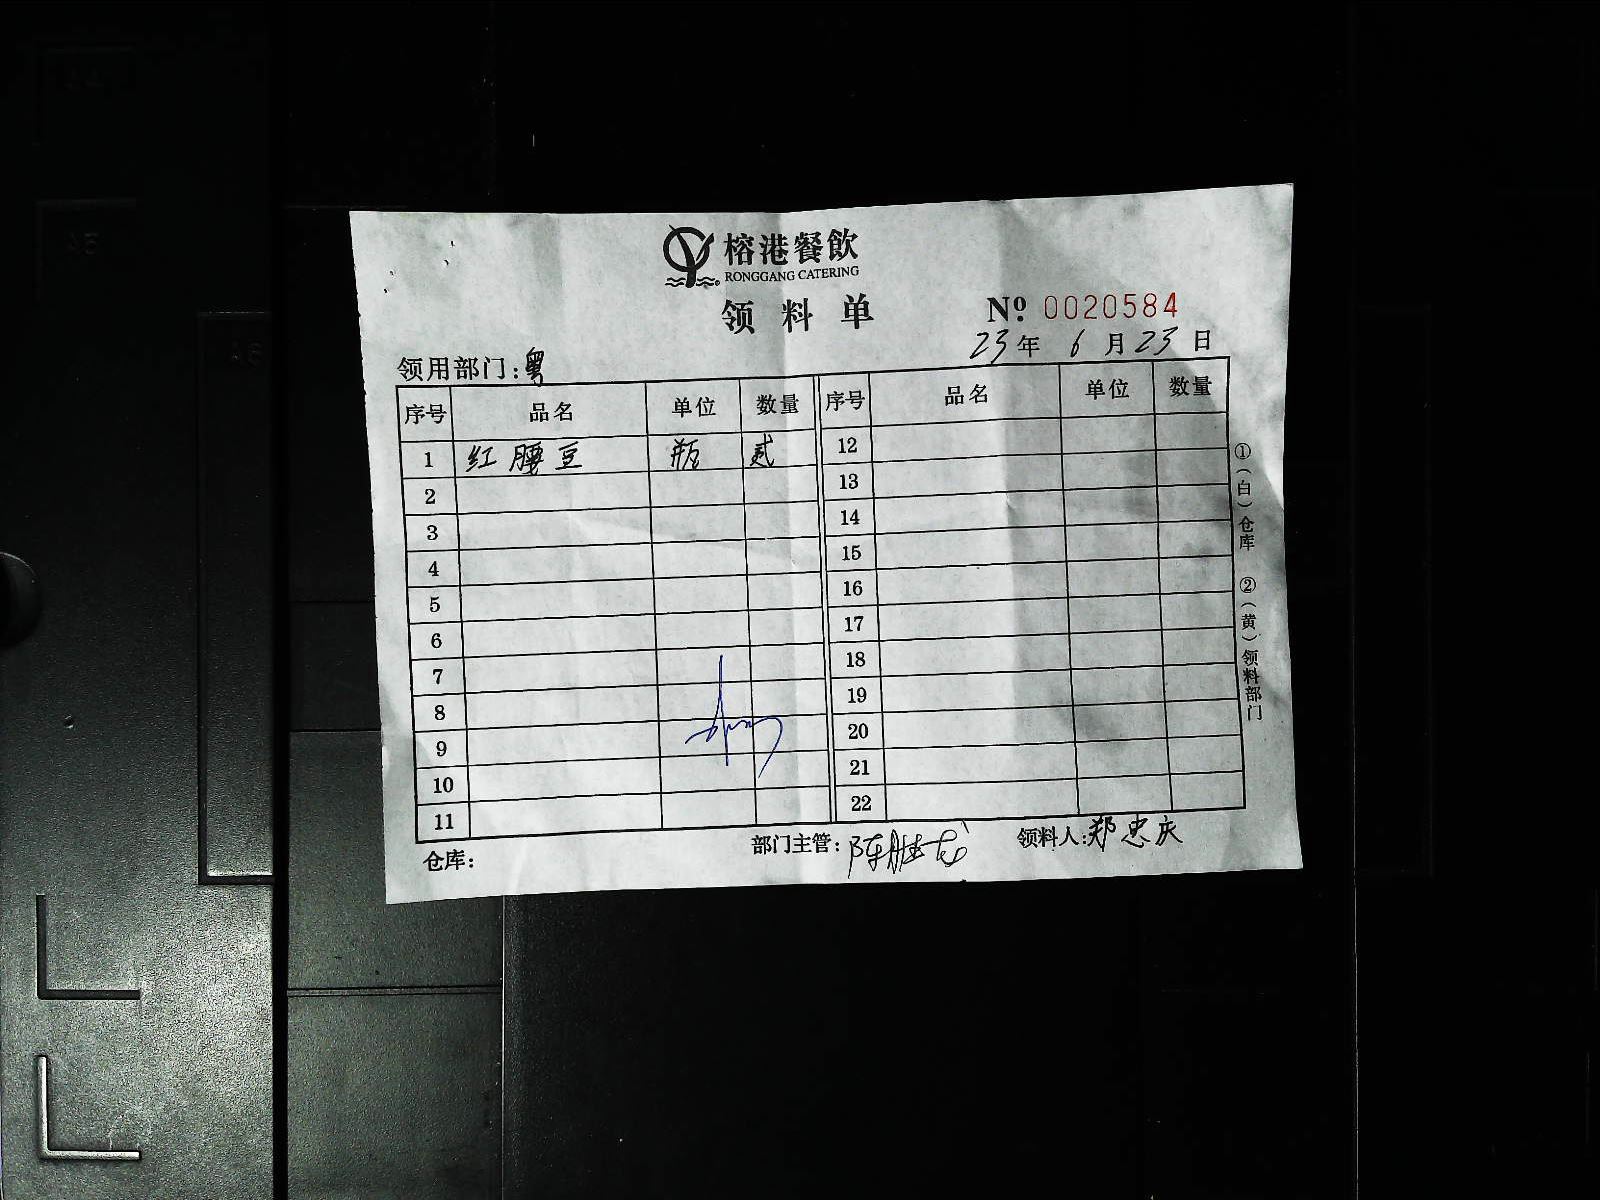 榕港餐飲
RONGGANG CATERING
领料单
№ 0020584
23年 6月23日
领用部门:粤
序号 品名 单位 数量 序号 品名 单位 数量
1 红腰豆 瓶 贰 12
2 13
3 14
4 15
5 16
6 17
7 18
8 19
9 20
10 21
11 22
仓库: 部门主管:陈胜龙 领料人:郑忠庆
①(白)仓库 ②(黄)领料部门
A5
A6